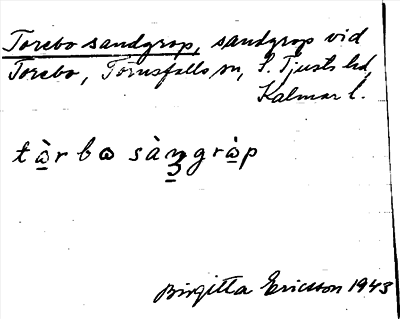 Torebo sandgrop, sandgrop vid
Torebo, Törnsfalls sn, S. Tjusts hd,
Kalmar l.
tɷ̱̀rbɷ sàn̠grɷ̱̀p
Birgitta Ericsson 1943